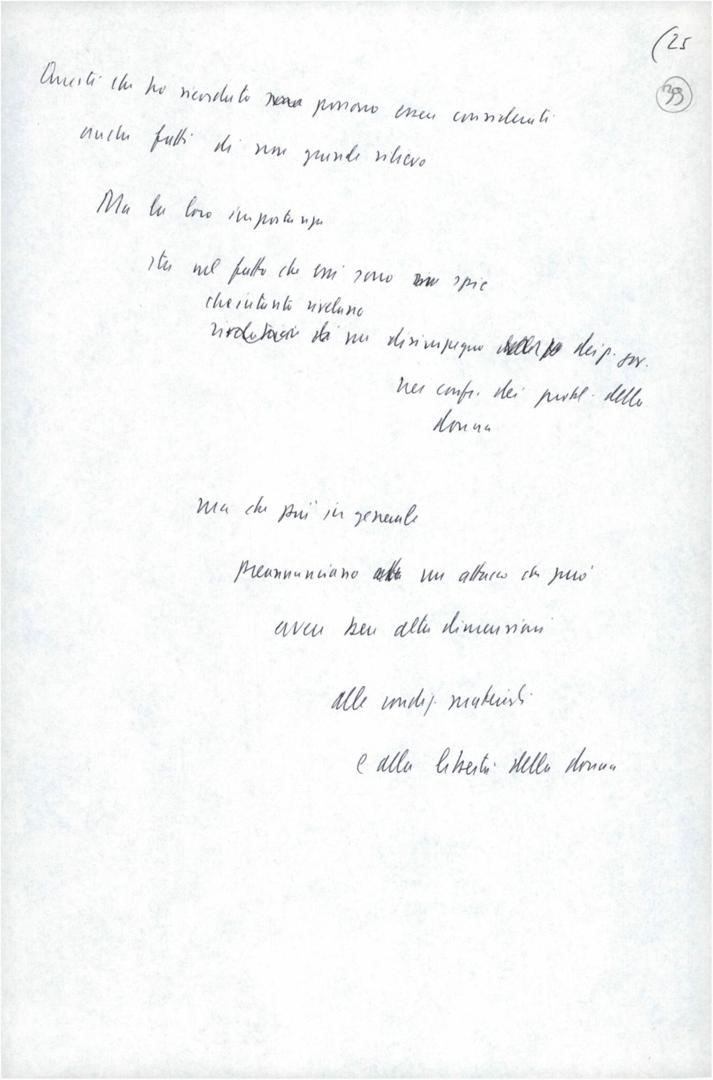 (25
39
Questi che ho ricordato possono essere considerati
anche fatti di non grande rilievo
Ma la loro importanza
sta nel fatto che essi sono spie
che intanto rivelano
un disimpegno dei p. gov.
nei conf. dei probl. della
donna
ma che più in generale
preannunciano un attacco che può
avere ben altre dimensioni
alle condiz. materiali
e alla libertà della donna